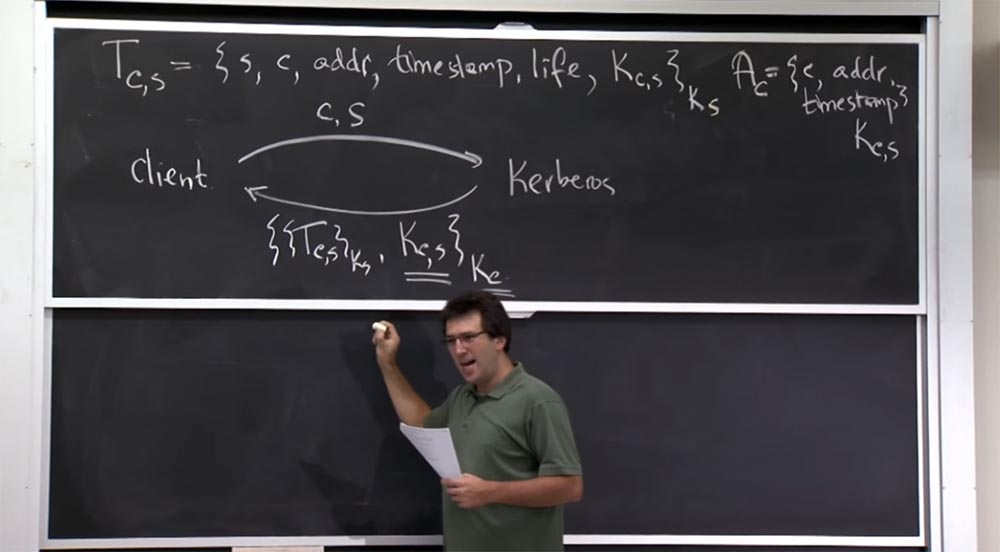 T_{c,s} = {s, c, addr, timestamp, life, K_{c,s}}_{K_s} A_c = {c, addr,
timestamp}
K_{c,s}
c, s
client Kerberos
{{T_{c,s}}_{K_s}, K_{c,s}}_{K_c}